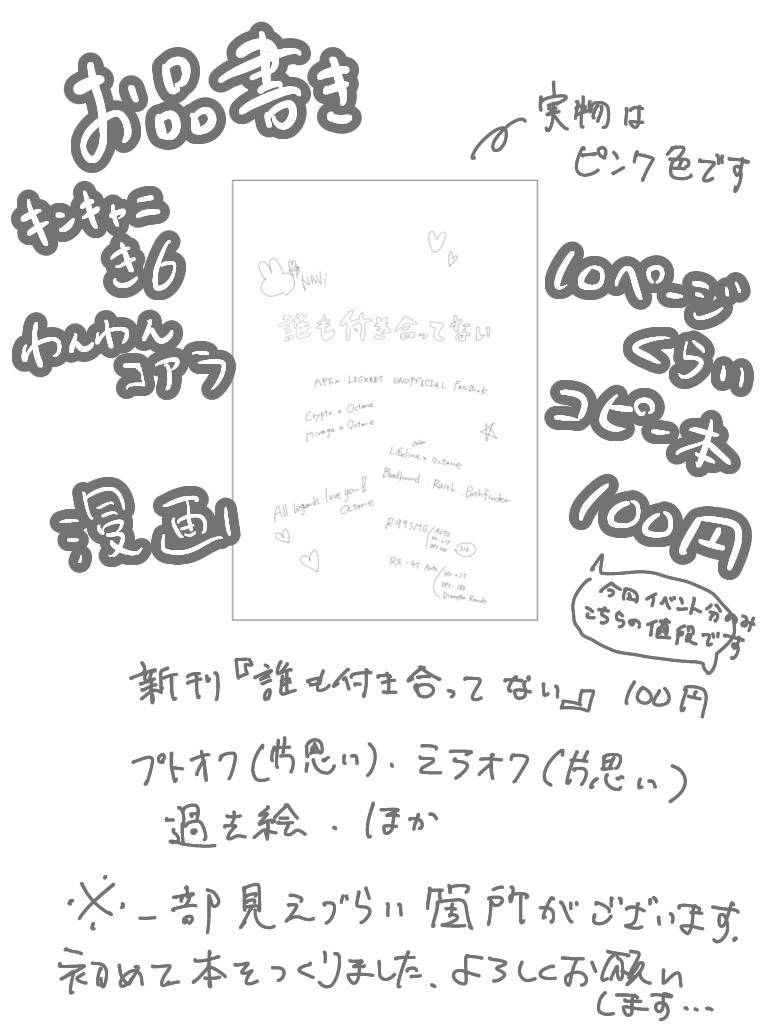 お品書き
実物は
ピンク色です
キンキャニ
き6
わんわん
コアラ
漫画
10ページ
くらい
コピー本
100円
今回イベント分のみ
こちらの値段です
NAVi
誰も付き合ってない
APEX・LEGENDS UNOFFICIAL FANBOOK
Crypto x Octane
Mirage x Octane
Lifeline x Octane
Bloodhound . Raith . Pathfinder
All legends love you!
Octane
R-99SMG
AUTO
RE-45 Auto
Disruptor Rounds
新刊『誰も付き合ってない』 100円
プトオク(片思い)・ミラオク(片思い)
過去絵・ほか
※一部見えづらい箇所がございます。
初めて本をつくりました。よろしくお願い
します…